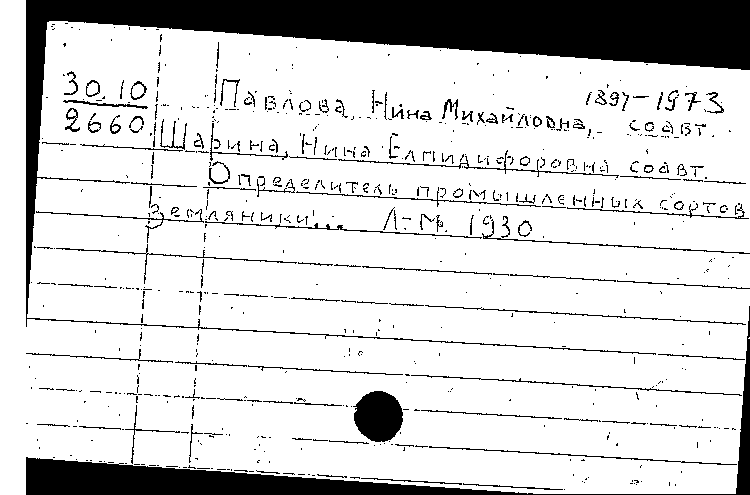 30.10
2660
1897-1973
Павлова, Нина Михайловна, соавт.
Шарина, Нина Елпидифоровна, соавт.
Определитель промышленных сортов
земляники... Л.-М. 1930.